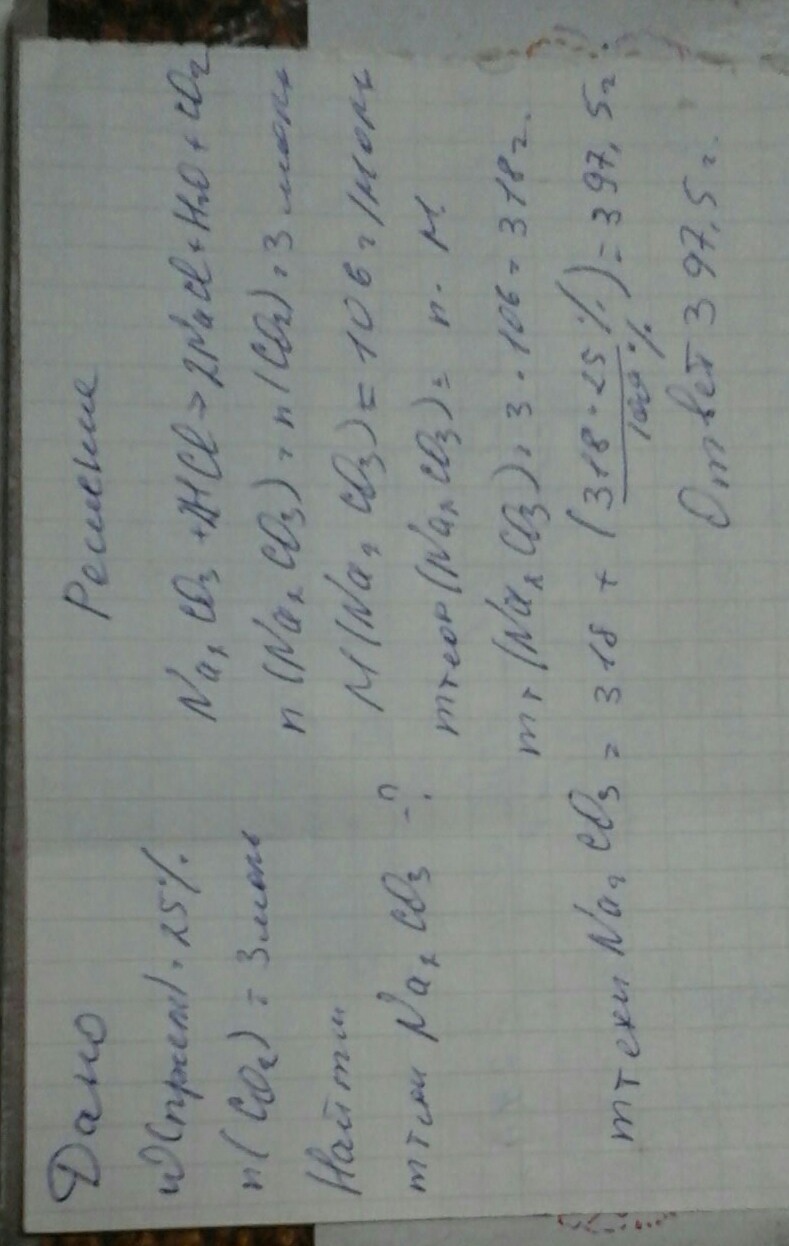 Дано
w(прим) = 25%
n(CO2) = 3 моль
Найти
mтехн Na2CO3 - ?
Решение
Na2CO3 + 2HCl → 2NaCl + H2O + CO2
n(Na2CO3) = n(CO2) = 3 моль
M(Na2CO3) = 106 г/моль
mтеор(Na2CO3) = n · M
mт(Na2CO3) = 3 · 106 = 318 г.
mтехн Na2CO3 = 318 + (318 · 25% / 100%) = 397,5 г.
Ответ 397,5 г.